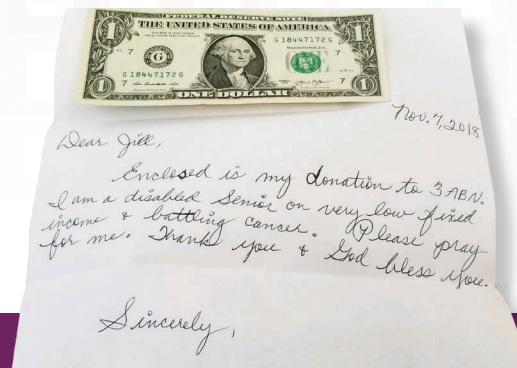 FEDERAL RESERVE NOTE
THE UNITED STATES OF AMERICA
G 18447172 G
WASHINGTON, D.C.
7 G 7
G 18447172 G
7 7
ONE DOLLAR
Nov. 7, 2018
Dear Jill,
Enclosed is my donation to 3ABN.
I am a disabled Senior on very low fixed
income & battling cancer. Please pray
for me. Thank you & God bless you.
Sincerely,